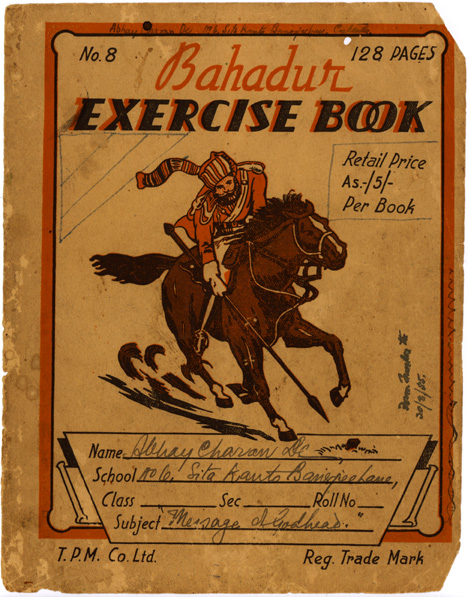 Abhay Charan De. No 6. Sita Kanto Banerjee Lane, Calcutta
No. 8
128 PAGES
Bahadur
EXERCISE BOOK
Retail Price
As:-/5/-
Per Book
30/3/05.
Name Abhay Charan De
School No 6, Sita Kanto Banerjee Lane,
Class Sec Roll No
Subject "Message of Godhead."
T.P.M. Co. Ltd.
Reg. Trade Mark